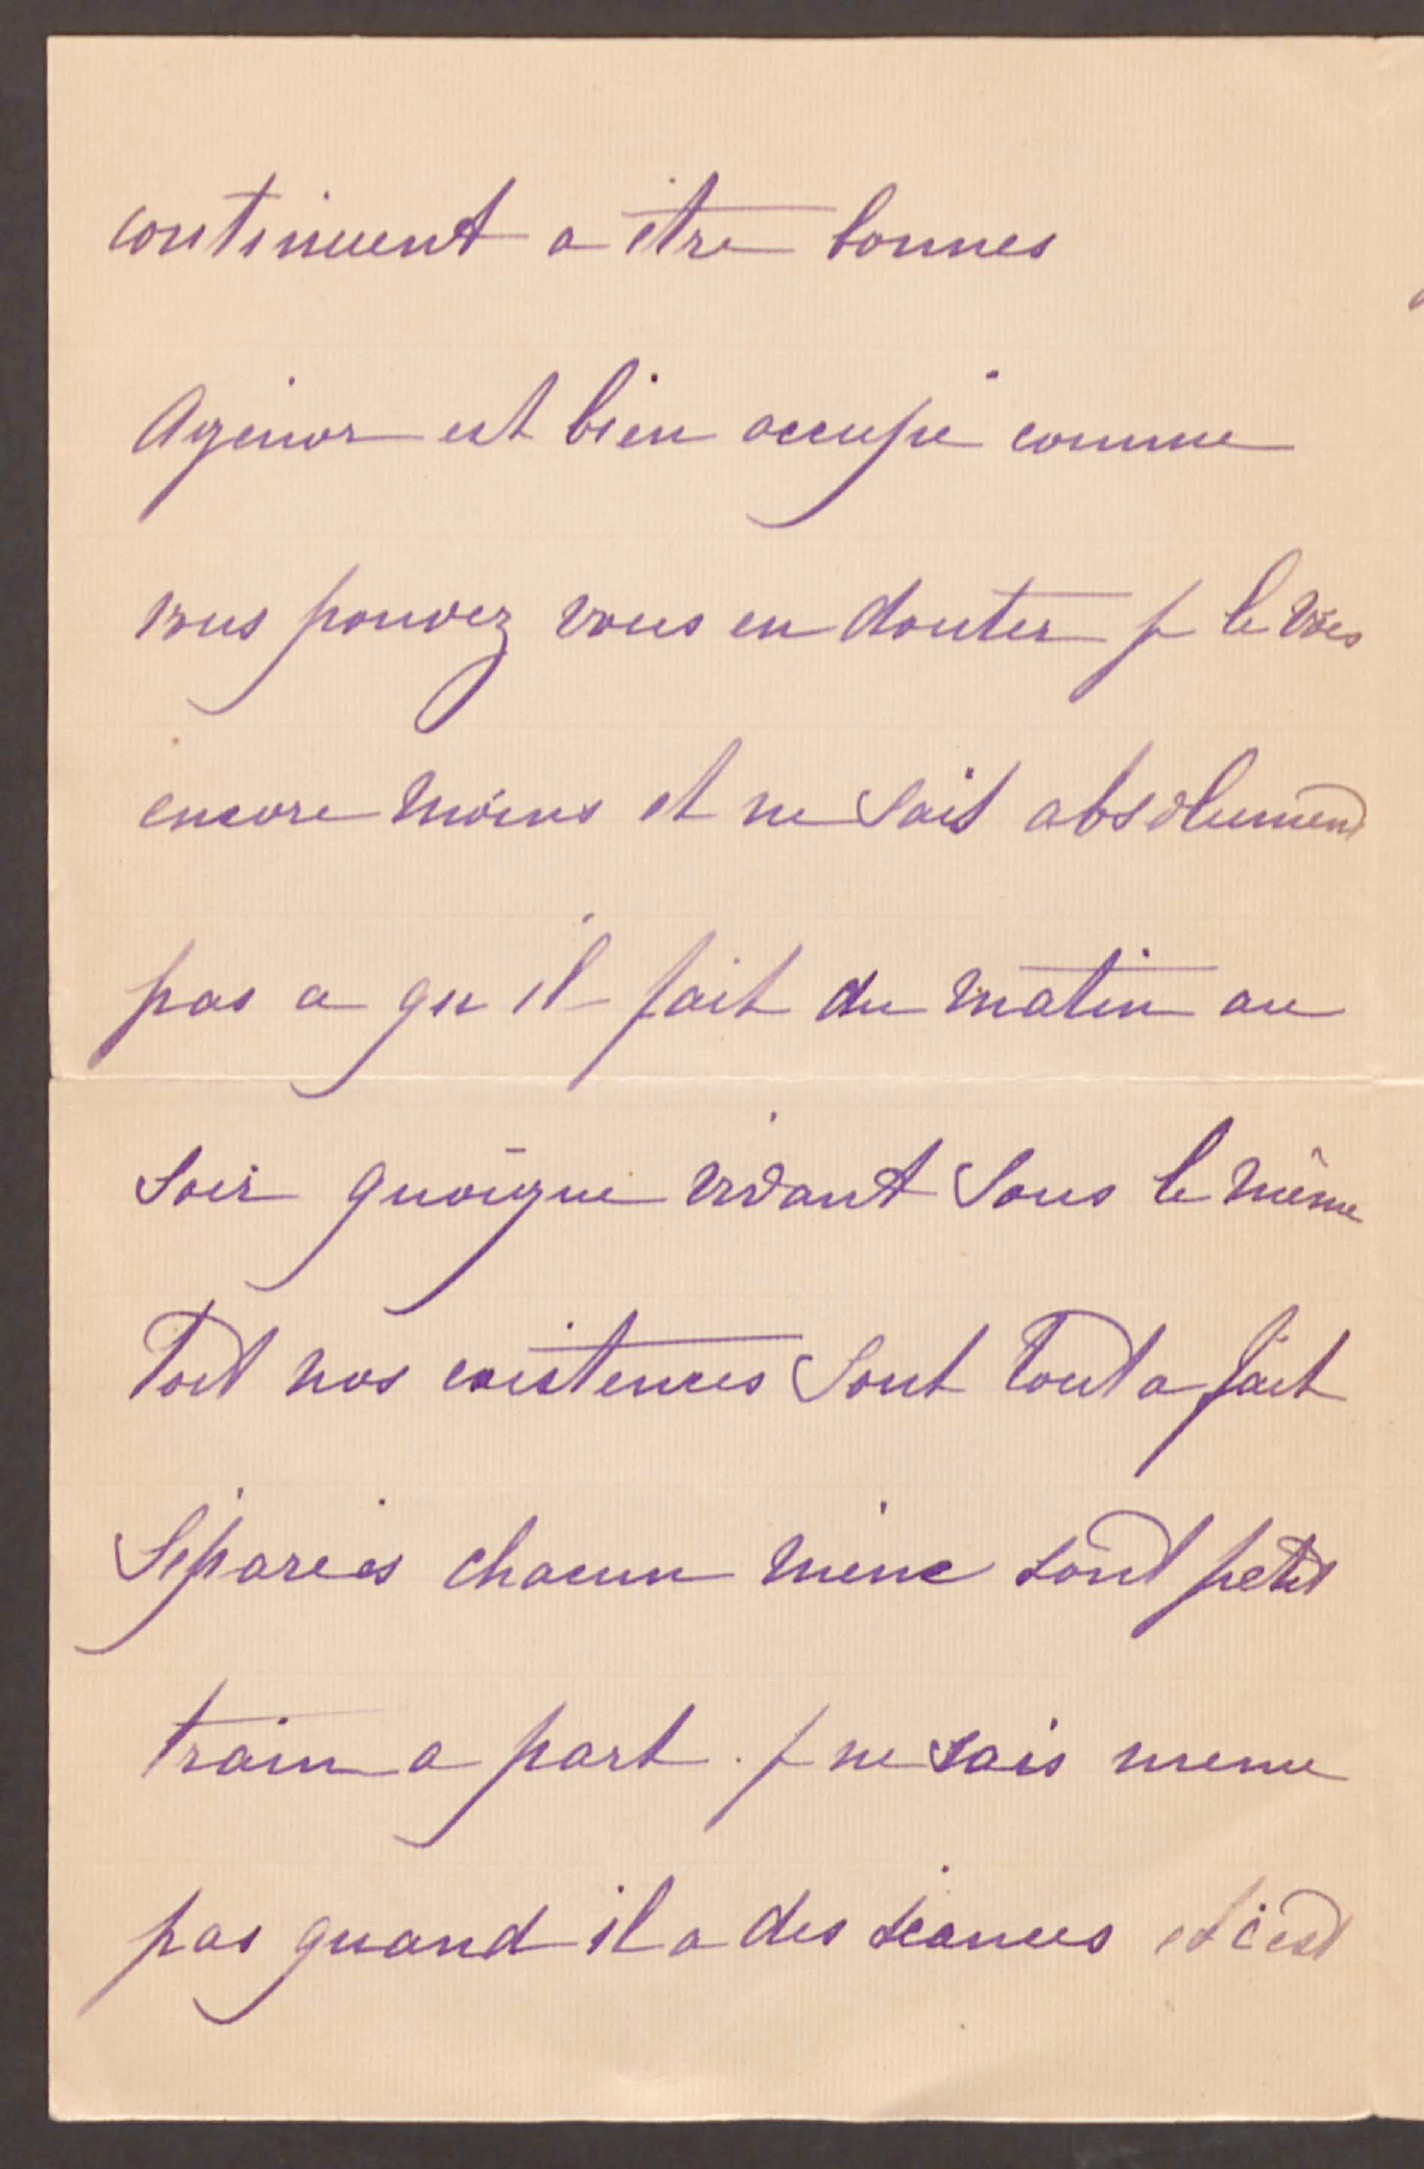 continuent a être bonnes
Agénor est bien occupé comme
vous pouvez vous en douter je le vois
encore moins et ne sait absolument
pas ce qu il fait du matin au
soir quoique vivant sous le même
toit nos existences sont tout a fait
séparées chacun mène sont petit
train a part. je ne sais meme
pas quand il a des séances et c'est